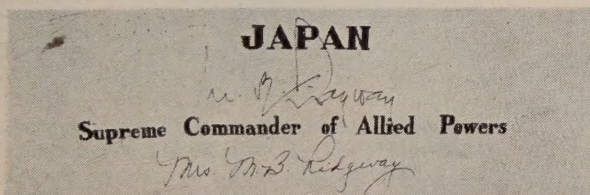 JAPAN
M. B. Ridgway
Supreme Commander of Allied Powers
Mrs M. B. Ridgway